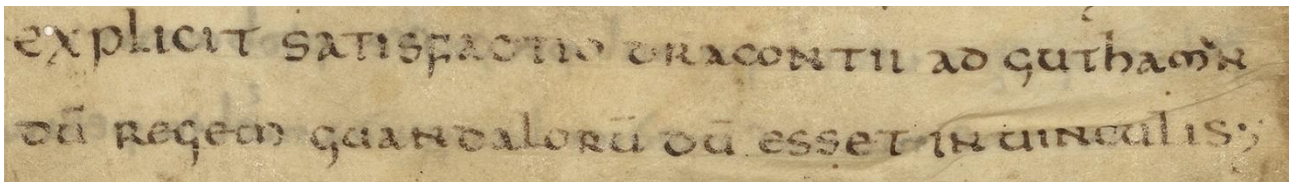 explicit satisfactio dracontii ad guthamun
dū regem guandalorū dū esset in uinculis;